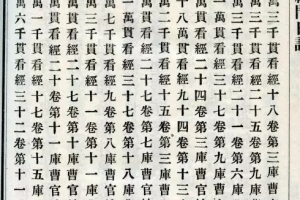 萬三千貫看經十八卷第三庫曹官
萬二千貫看經二十五卷第九庫曹
萬三千貫看經二十一卷第六庫
七千貫看經二十七卷第九庫曹官
十八萬貫看經九十四卷第十三
萬貫看經二十四卷第三庫曹官
萬貫看經三十七卷第十八庫
萬二千貫看經二十七卷第七庫曹官
七千貫看經九卷第八庫曹官
萬三千貫看經十一卷第十一
萬貫看經二十卷第十庫曹官
萬一千貫看經十七卷第十五庫
萬六千貫看經三十二卷第十一